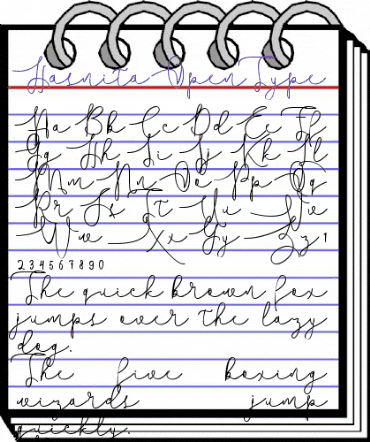 Hasnita OpenType
Aa Bb Cc Dd Ee Ff
Gg Hh Ii Jj Kk Ll
Mm Nn Oo Pp Qq
Rr Ss Tt Uu Vv
Ww Xx Yy Zz1
234567890
The quick brown fox
jumps over the lazy
dog.
The five boxing
wizards jump
quickly.